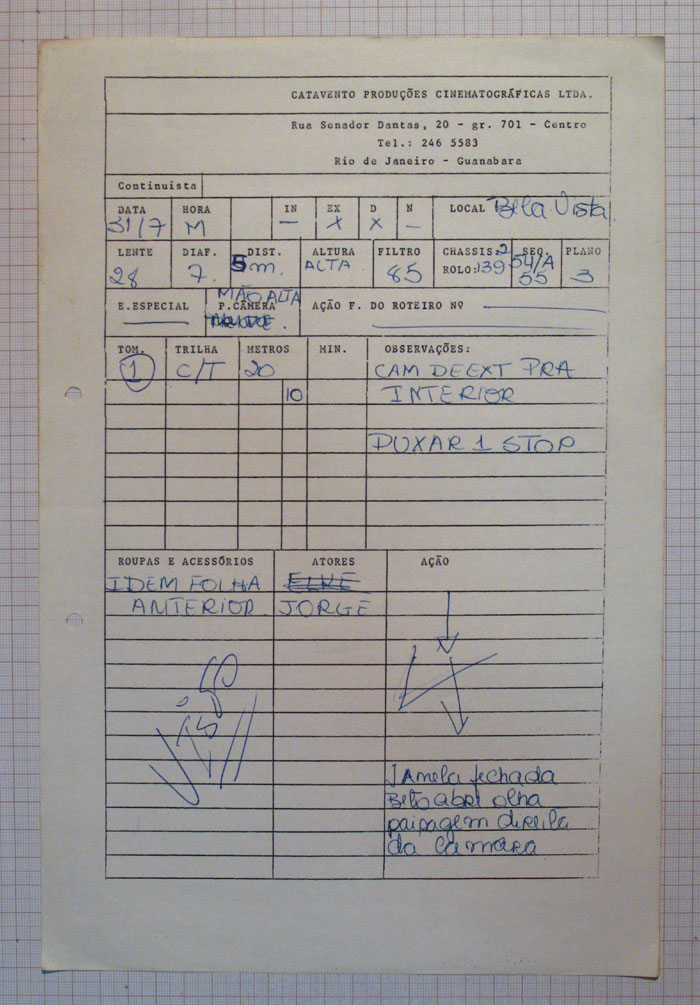 CATAVENTO PRODUÇÕES CINEMATOGRÁFICAS LTDA.
Rua Senador Dantas, 20 - gr. 701 - Centro
Tel.: 246 5583
Rio de Janeiro - Guanabara
Continuista
DATA HORA IN EX D N LOCAL Bela Vista
31/7 M — X X —
LENTE DIAF. DIST. ALTURA FILTRO CHASSIS: 2 SEQ. PLANO
28 7. 5m. ALTA 85 ROLO: 139 54/A 55 3
E.ESPECIAL P.CÂMERA AÇÃO F. DO ROTEIRO Nº
MÃO ALTA
TOM. TRILHA METROS MIN. OBSERVAÇÕES:
1 C/T 20 CAM DE EXT PRA
10 INTERIOR
PUXAR 1 STOP
ROUPAS E ACESSÓRIOS ATORES AÇÃO
IDEM FOLHA ELKE
ANTERIOR JORGE
JAnela fechada
Beto abre olha
paipagem direita
da Camara